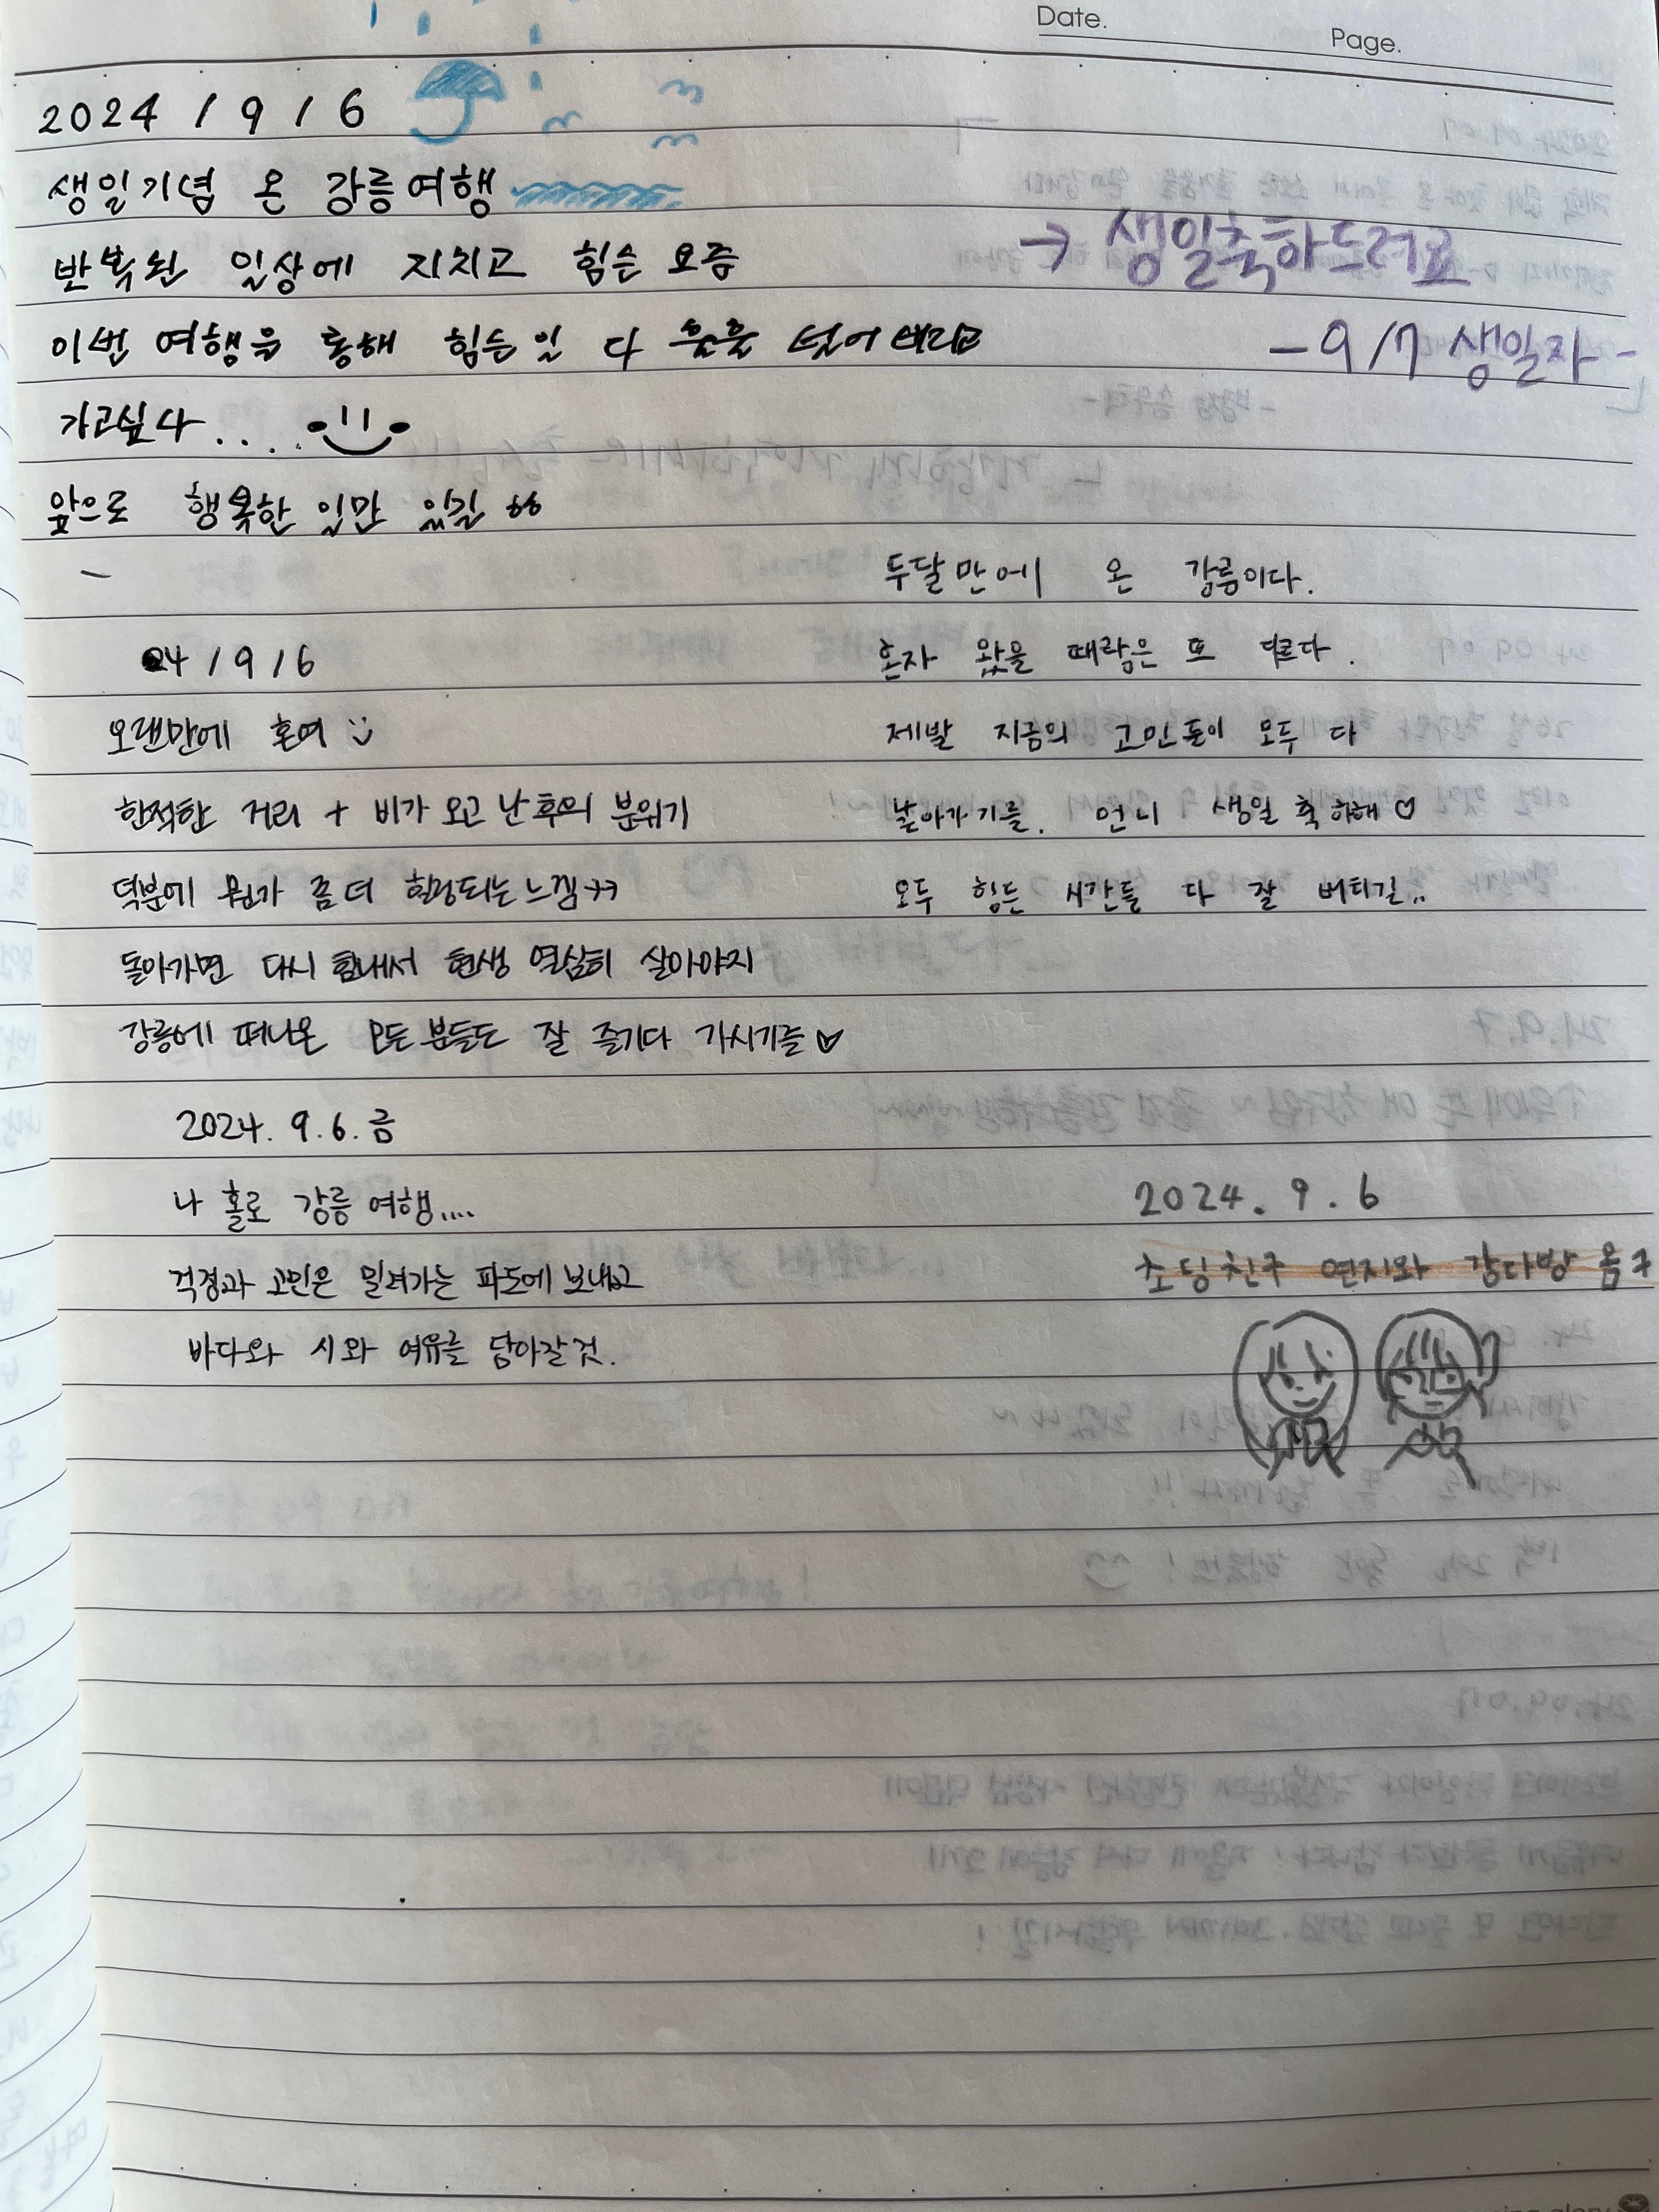 Date.
Page.
2024 / 9 / 6
생일기념 온 강릉여행
반복된 일상에 지치고 힘든 요즘
이번 여행을 통해 힘든일 다 훌훌 털어버리고
가고싶다....
앞으로 행복한 일만 있길
→ 생일축하드려요
-9/7 생일자-
두달만에 온 강릉이다.
혼자 왔을 때랑은 또 다르다.
제발 지금의 고민들이 모두 다
날아가기를. 언니 생일 축하해♡
모두 힘든 시간들 다 잘 버티길..
24 / 9 / 6
오랜만에 혼여 :)
한적한 거리 + 비가 오고 난 후의 분위기
덕분에 뭔가 좀 더 힐링되는 느낌ㅋㅋ
돌아가면 다시 힘내서 현생 열심히 살아야지
강릉에 떠나온 모든 분들도 잘 즐기다 가시기를♡
2024. 9. 6. 금
나 홀로 강릉 여행....
걱정과 고민은 밀려가는 파도에 보내고
바다와 시와 여유를 담아갈 것.
2024. 9. 6
초딩친구 연지와 강다방 옴ㅋ